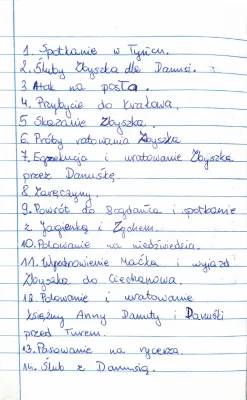 1. Spotkanie w Tyńcu.
2. Śluby Zbyszka dla Danusi.
3 Atak na posła.
4. Przybycie do Krakowa.
5. Skazanie Zbyszka.
6. Próby ratowania Zbyszka
7. Egzekucja i uratowanie Zbyszka
przez Danuśkę.
8 Zaręczyny.
9. Powrót do Bogdańca i spotkanie
z Jagienką i Zychem.
10. Polowanie na niedźwiedzia.
11. Wyzdrowienie Maćka i wyjazd
Zbyszka do Ciechanowa.
12. Polowanie i uratowanie
księżny Anny Danuty i Danuśki
przed Turem.
13. Pasowanie na rycerza.
14. Ślub z Danusią.